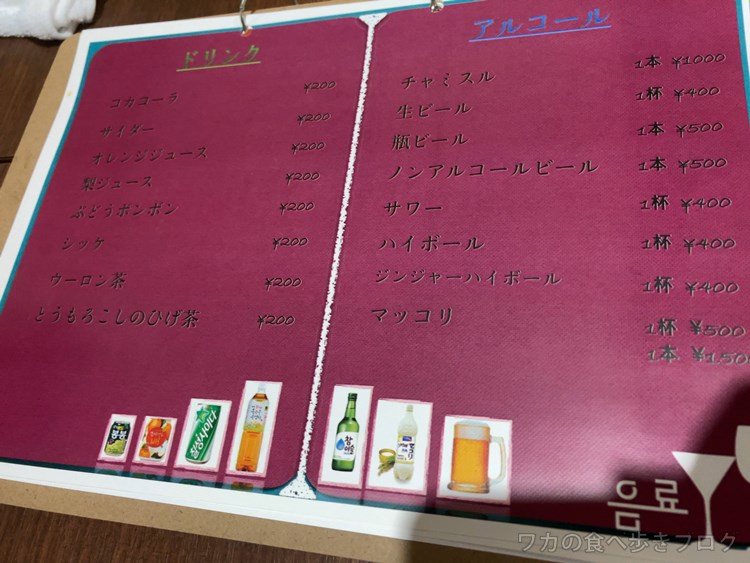 ドリンク
コカコーラ ¥200
サイダー ¥200
オレンジジュース ¥200
梨ジュース ¥200
ぶどうボンボン ¥200
シッケ ¥200
ウーロン茶 ¥200
とうもろこしのひげ茶 ¥200
アルコール
チャミスル 1本 ¥1000
生ビール 1杯 ¥400
瓶ビール 1本 ¥500
ノンアルコールビール 1本 ¥500
サワー 1杯 ¥400
ハイボール 1杯 ¥400
ジンジャーハイボール 1杯 ¥400
マッコリ 1杯 ¥500
1本 ¥150
봉봉
칠성사이다
참이슬
음료
ワカの食べ歩きブログ